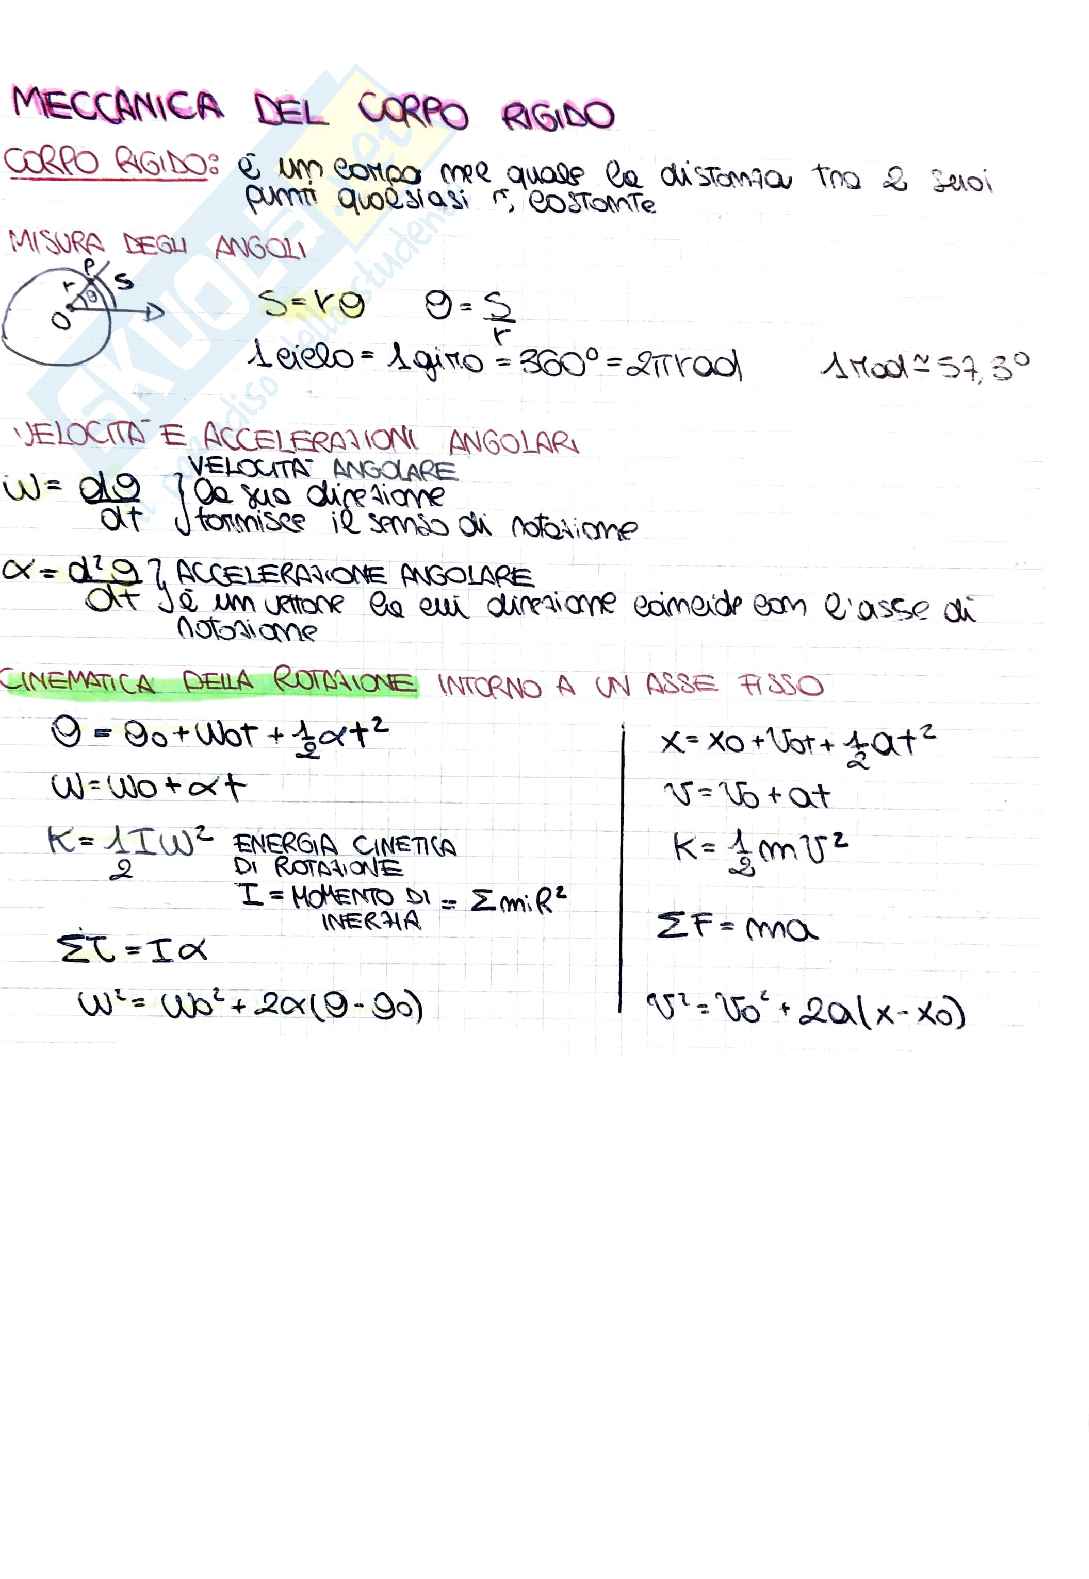 MECCANICA DEL CORPO RIGIDO
CORPO RIGIDO: è un corpo nel quale la distanza tra 2 suoi
punti qualsiasi r, costante
MISURA DEGLI ANGOLI
P
r θ S
O
S = rθ θ = S/r
1 ciclo = 1 giro = 360° = 2π rad 1 rad ≃ 57,3°
VELOCITÀ E ACCELERAZIONI ANGOLARI
VELOCITÀ ANGOLARE
ω = dθ/dt la sua direzione
fornisce il senso di rotazione
α = d²θ/dt ACCELERAZIONE ANGOLARE
è un vettore la cui direzione coincide con l'asse di
rotazione
CINEMATICA DELLA ROTAZIONE INTORNO A UN ASSE FISSO
θ = θ0 + ω0t + 1/2 αt² x = x0 + v0t + 1/2 at²
ω = ω0 + αt v = v0 + at
K = 1/2 Iω² ENERGIA CINETICA K = 1/2 mv²
DI ROTAZIONE
I = MOMENTO DI = Σmi R²
INERZIA
Στ = Iα ΣF = ma
ω² = ω0² + 2α(θ - θ0) v² = v0² + 2a(x - x0)
SKUOLA.net
il paradiso dello studente